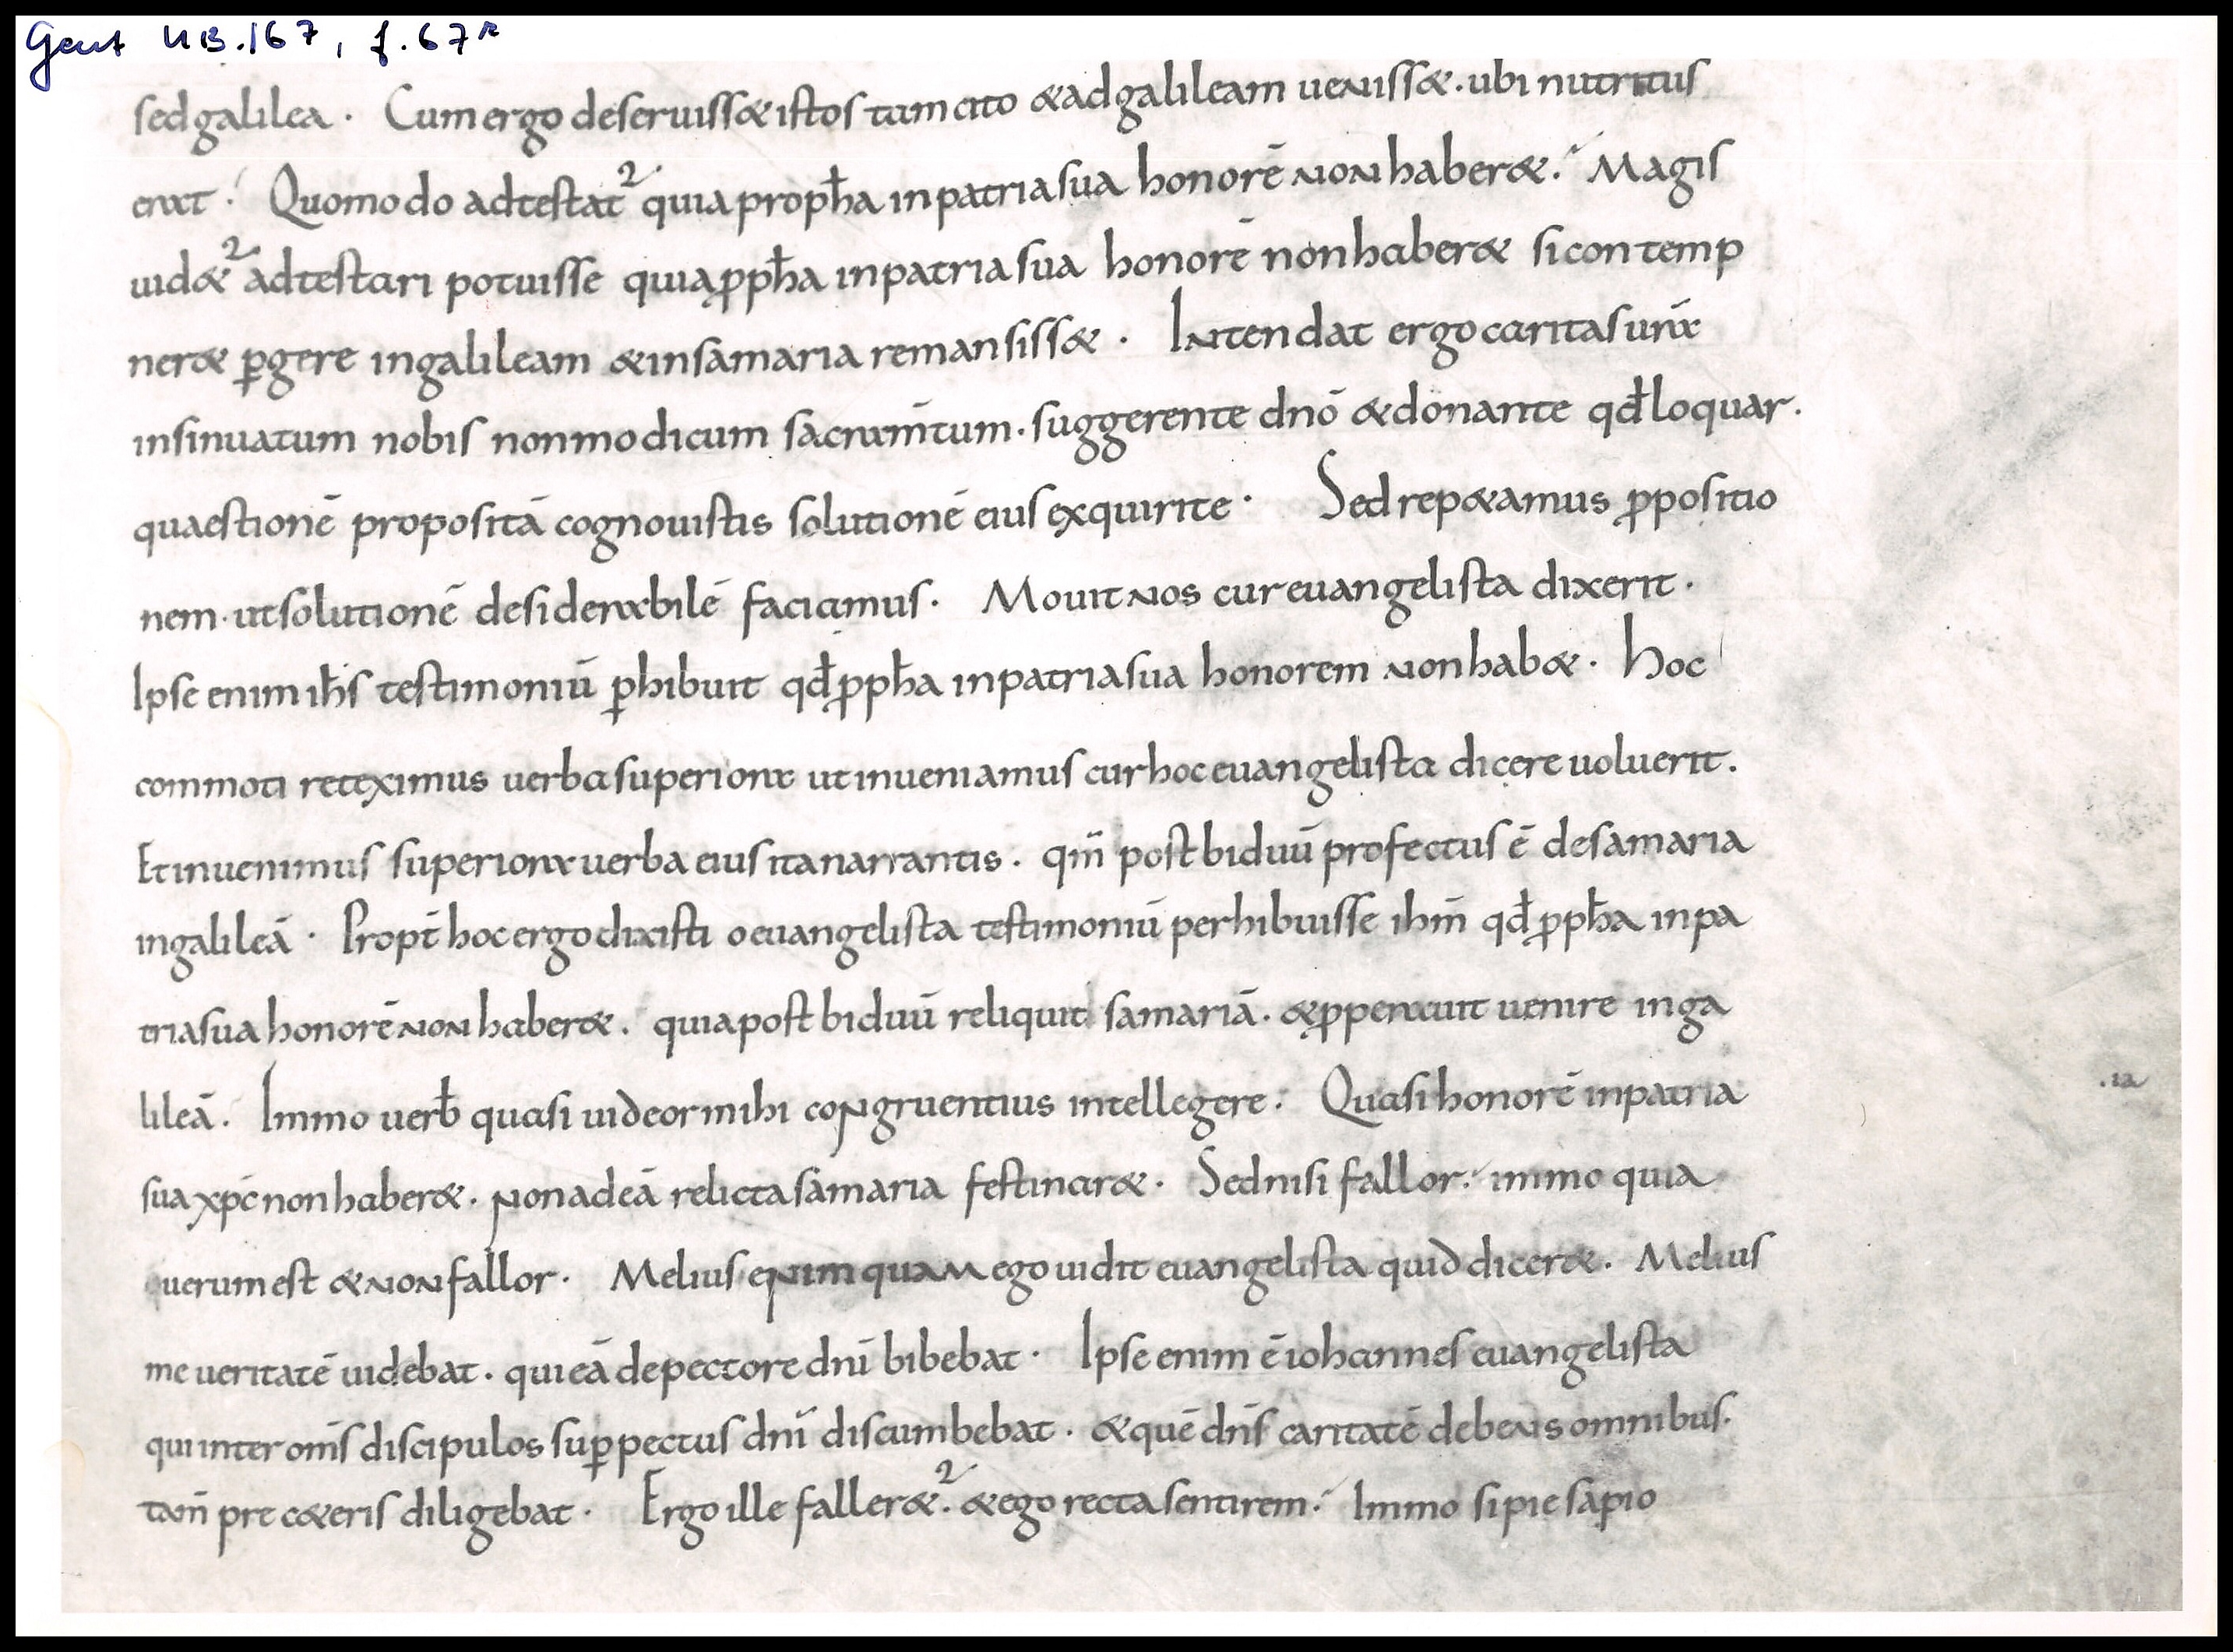 Gent UB.167, f.67ʳ
sed galilea · Cum ergo deseruiss& istos tam cito & ad galileam ueniss&. ubi nutritus
erat · Quomodo adtestat² quia propħa in patria sua honorē non haber&. Magis
uid&² adtestari potuisse quia ꝓpħa in patria sua honorē non haber& si contemp
ner& ꝑgere in galileam & in samaria remansiss& · Intendat ergo caritas urā
insinuatum nobis non modicum sacram̄tum. suggerente dnō & donante qđ loquar.
quaestionē propositā cognouistis solutionē eius exquirite · Sed rep&amus ꝓpositio
nem · ut solutionē desiderabilē faciamus · Mouit nos cur euangelista dixerit ·
Ipse enim ihs̄ testimoniū ꝑhibuit qđ ꝓpħa in patria sua honorem non hab& · hoc
commoti reteximus uerba superiora ut inueniamus cur hoc euangelista dicere uoluerit.
Et inuenimus superiora uerba eius ita narrantis. qm̄ post biduū profectus ē de samaria
in galileā · Propt̄ hoc ergo dixisti o euangelista testimoniū perhibuisse ihm̄ qđ ꝓpħa in pa
tria sua honorē non haber&. quia post biduū reliquit samariā. & ꝓperauit uenire in ga
lileā. Immo uerƀ quasi uideor mihi congruentius intellegere. Quasi honorē in patria
sua xp̄c non haber&. non ad eā relicta samaria festinar& · Sed nisi fallor. immo quia
uerum est & non fallor · Melius enim quam ego uidit euangelista quid dicer&. Melius
me ueritatē uidebat. qui eā de pectore dnī bibebat · Ipse enim ē iohannes euangelista
qui inter om̄s discipulos suꝑ pectus dnī discumbebat · & quē dn̄s caritatē debens omnibus.
tam̄ pre c&eris diligebat · Ergo ille faller&². & ego recta sentirem. Immo si pie sapio